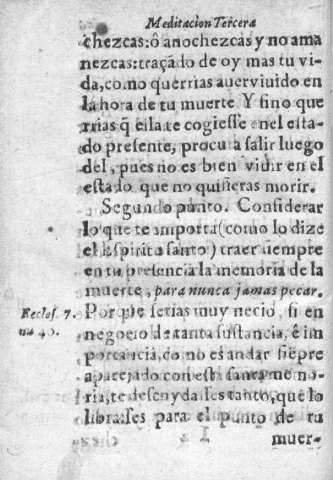 Meditacion Tercera
chezcas:ô anochezcas y no ama
nezcas:traçãdo de oy mas tu vi-
da, como querrias auer viuido en
la hora de tu muerte Y sino que
rrias q̃ ella te cogiesse enel esta-
do presente, procura salir luego
del, pues no es bien viuir en el
estado que no quisieras morir.
Segundo punto. Considerar
lo que te importa (como lo dize
el Espiritu santo) traer siempre
en tu presencia la memoria de la
muerte, para nunca jamas pecar.
Eccles. 7. Porque serias muy necio, si en
nu 40. negocio de tanta sustancia, è im
portancia, como es andar siẽpre
aparejado con esta santa memo-
ria, te descuydasses tanto, que lo
librasses para el punto de tu
muer-